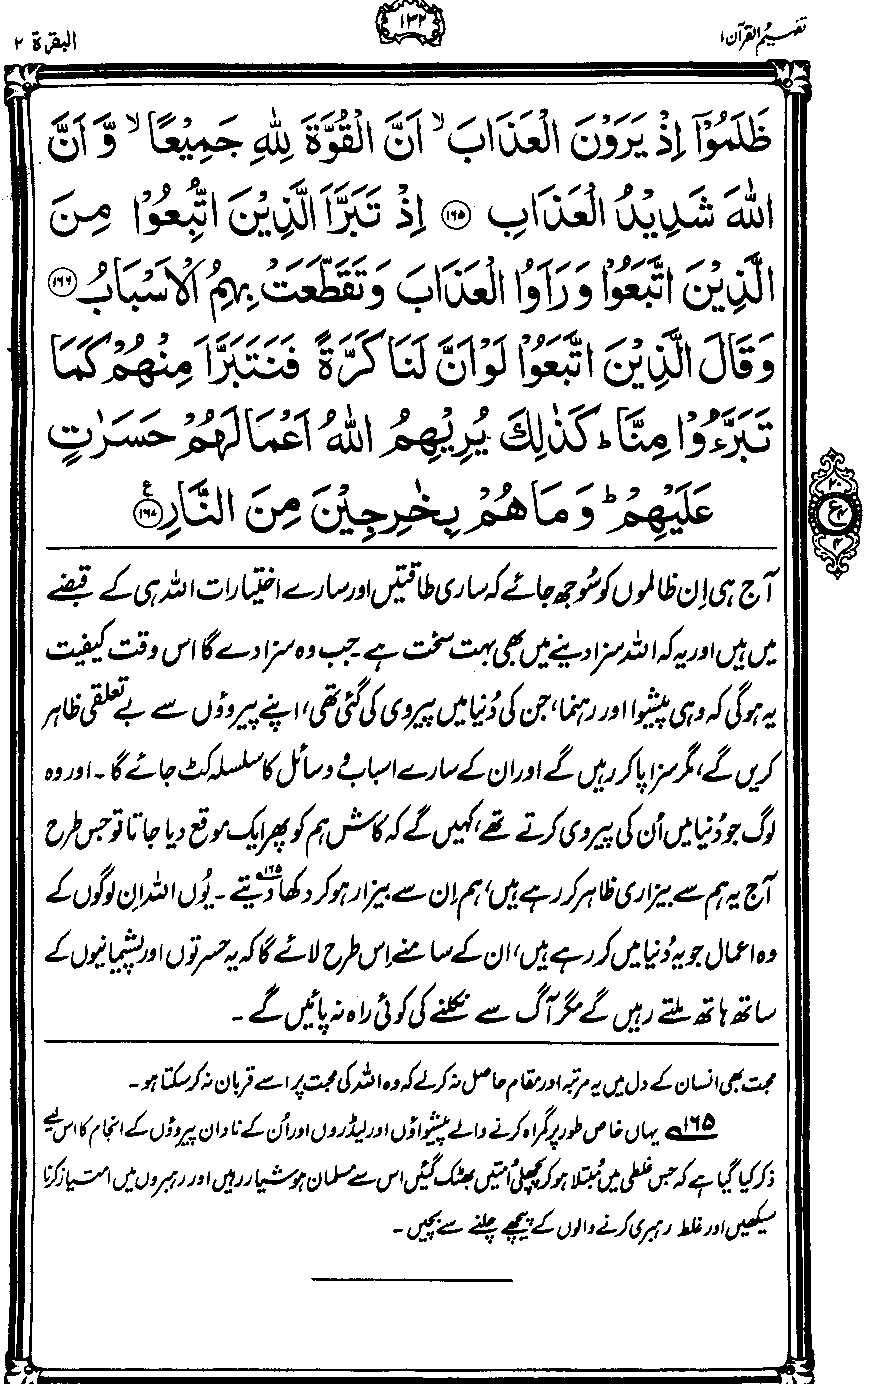 تفہیم القرآن ۱
۱۳۲
البقرۃ ۲
ظَلَمُوْۤا اِذْ يَرَوْنَ الْعَذَابَ ۙ اَنَّ الْقُوَّةَ لِلّٰهِ جَمِيْعًا ۙ وَّ اَنَّ
اللّٰهَ شَدِيْدُ الْعَذَابِ ﴿۱۶۵﴾ اِذْ تَبَرَّاَ الَّذِيْنَ اتُّبِعُوْا مِنَ
الَّذِيْنَ اتَّبَعُوْا وَرَاَوُا الْعَذَابَ وَتَقَطَّعَتْ بِهِمُ الْاَسْبَابُ ﴿۱۶۶﴾
وَقَالَ الَّذِيْنَ اتَّبَعُوْا لَوْ اَنَّ لَنَا كَرَّةً فَنَتَبَرَّاَ مِنْهُمْ كَمَا
تَبَرَّءُوْا مِنَّا ؕ كَذٰلِكَ يُرِيْهِمُ اللّٰهُ اَعْمَالَهُمْ حَسَرٰتٍ
عَلَيْهِمْ ؕ وَمَا هُمْ بِخٰرِجِيْنَ مِنَ النَّارِ ﴿۱۶۷﴾ ع
۲۰
ع
۴
آج ہی اِن ظالموں کو سُوجھ جائے کہ ساری طاقتیں اور سارے اختیارات اللہ ہی کے قبضے
میں ہیں اور یہ کہ اللہ سزا دینے میں بھی بہت سخت ہے۔ جب وہ سزا دے گا اس وقت کیفیت
یہ ہوگی کہ وہی پیشوا اور رہنما، جن کی دُنیا میں پیروی کی گئی تھی، اپنے پیروؤں سے بے تعلقی ظاہر
کریں گے، مگر سزا پا کر رہیں گے اور ان کے سارے اسباب و وسائل کا سلسلہ کٹ جائے گا۔ اور وہ
لوگ جو دُنیا میں اُن کی پیروی کرتے تھے، کہیں گے کہ کاش ہم کو پھر ایک موقع دیا جاتا تو جس طرح
آج یہ ہم سے بیزاری ظاہر کر رہے ہیں، ہم اِن سے بیزار ہو کر دکھا دیتے۱۶۵۔ یُوں اللہ اِن لوگوں کے
وہ اعمال جو یہ دُنیا میں کر رہے ہیں، ان کے سامنے اِس طرح لائے گا کہ یہ حسرتوں اور پشیمانیوں کے
ساتھ ہاتھ ملتے رہیں گے مگر آگ سے نکلنے کی کوئی راہ نہ پائیں گے۔
محبت بھی انسان کے دل میں یہ مرتبہ اور مقام حاصل نہ کر لے کہ وہ اللہ کی محبت پر اسے قربان نہ کر سکتا ہو۔
۱۶۵ یہاں خاص طور پر گمراہ کرنے والے پیشواؤں اور لیڈروں اور اُن کے نادان پیروؤں کے انجام کا اس لیے
ذکر کیا گیا ہے کہ جس غلطی میں مُبتلا ہو کر پچھلی اُمتیں بھٹک گئیں اس سے مسلمان ہوشیار رہیں اور رہبروں میں امتیاز کرنا
سیکھیں اور غلط رہبری کرنے والوں کے پیچھے چلنے سے بچیں۔